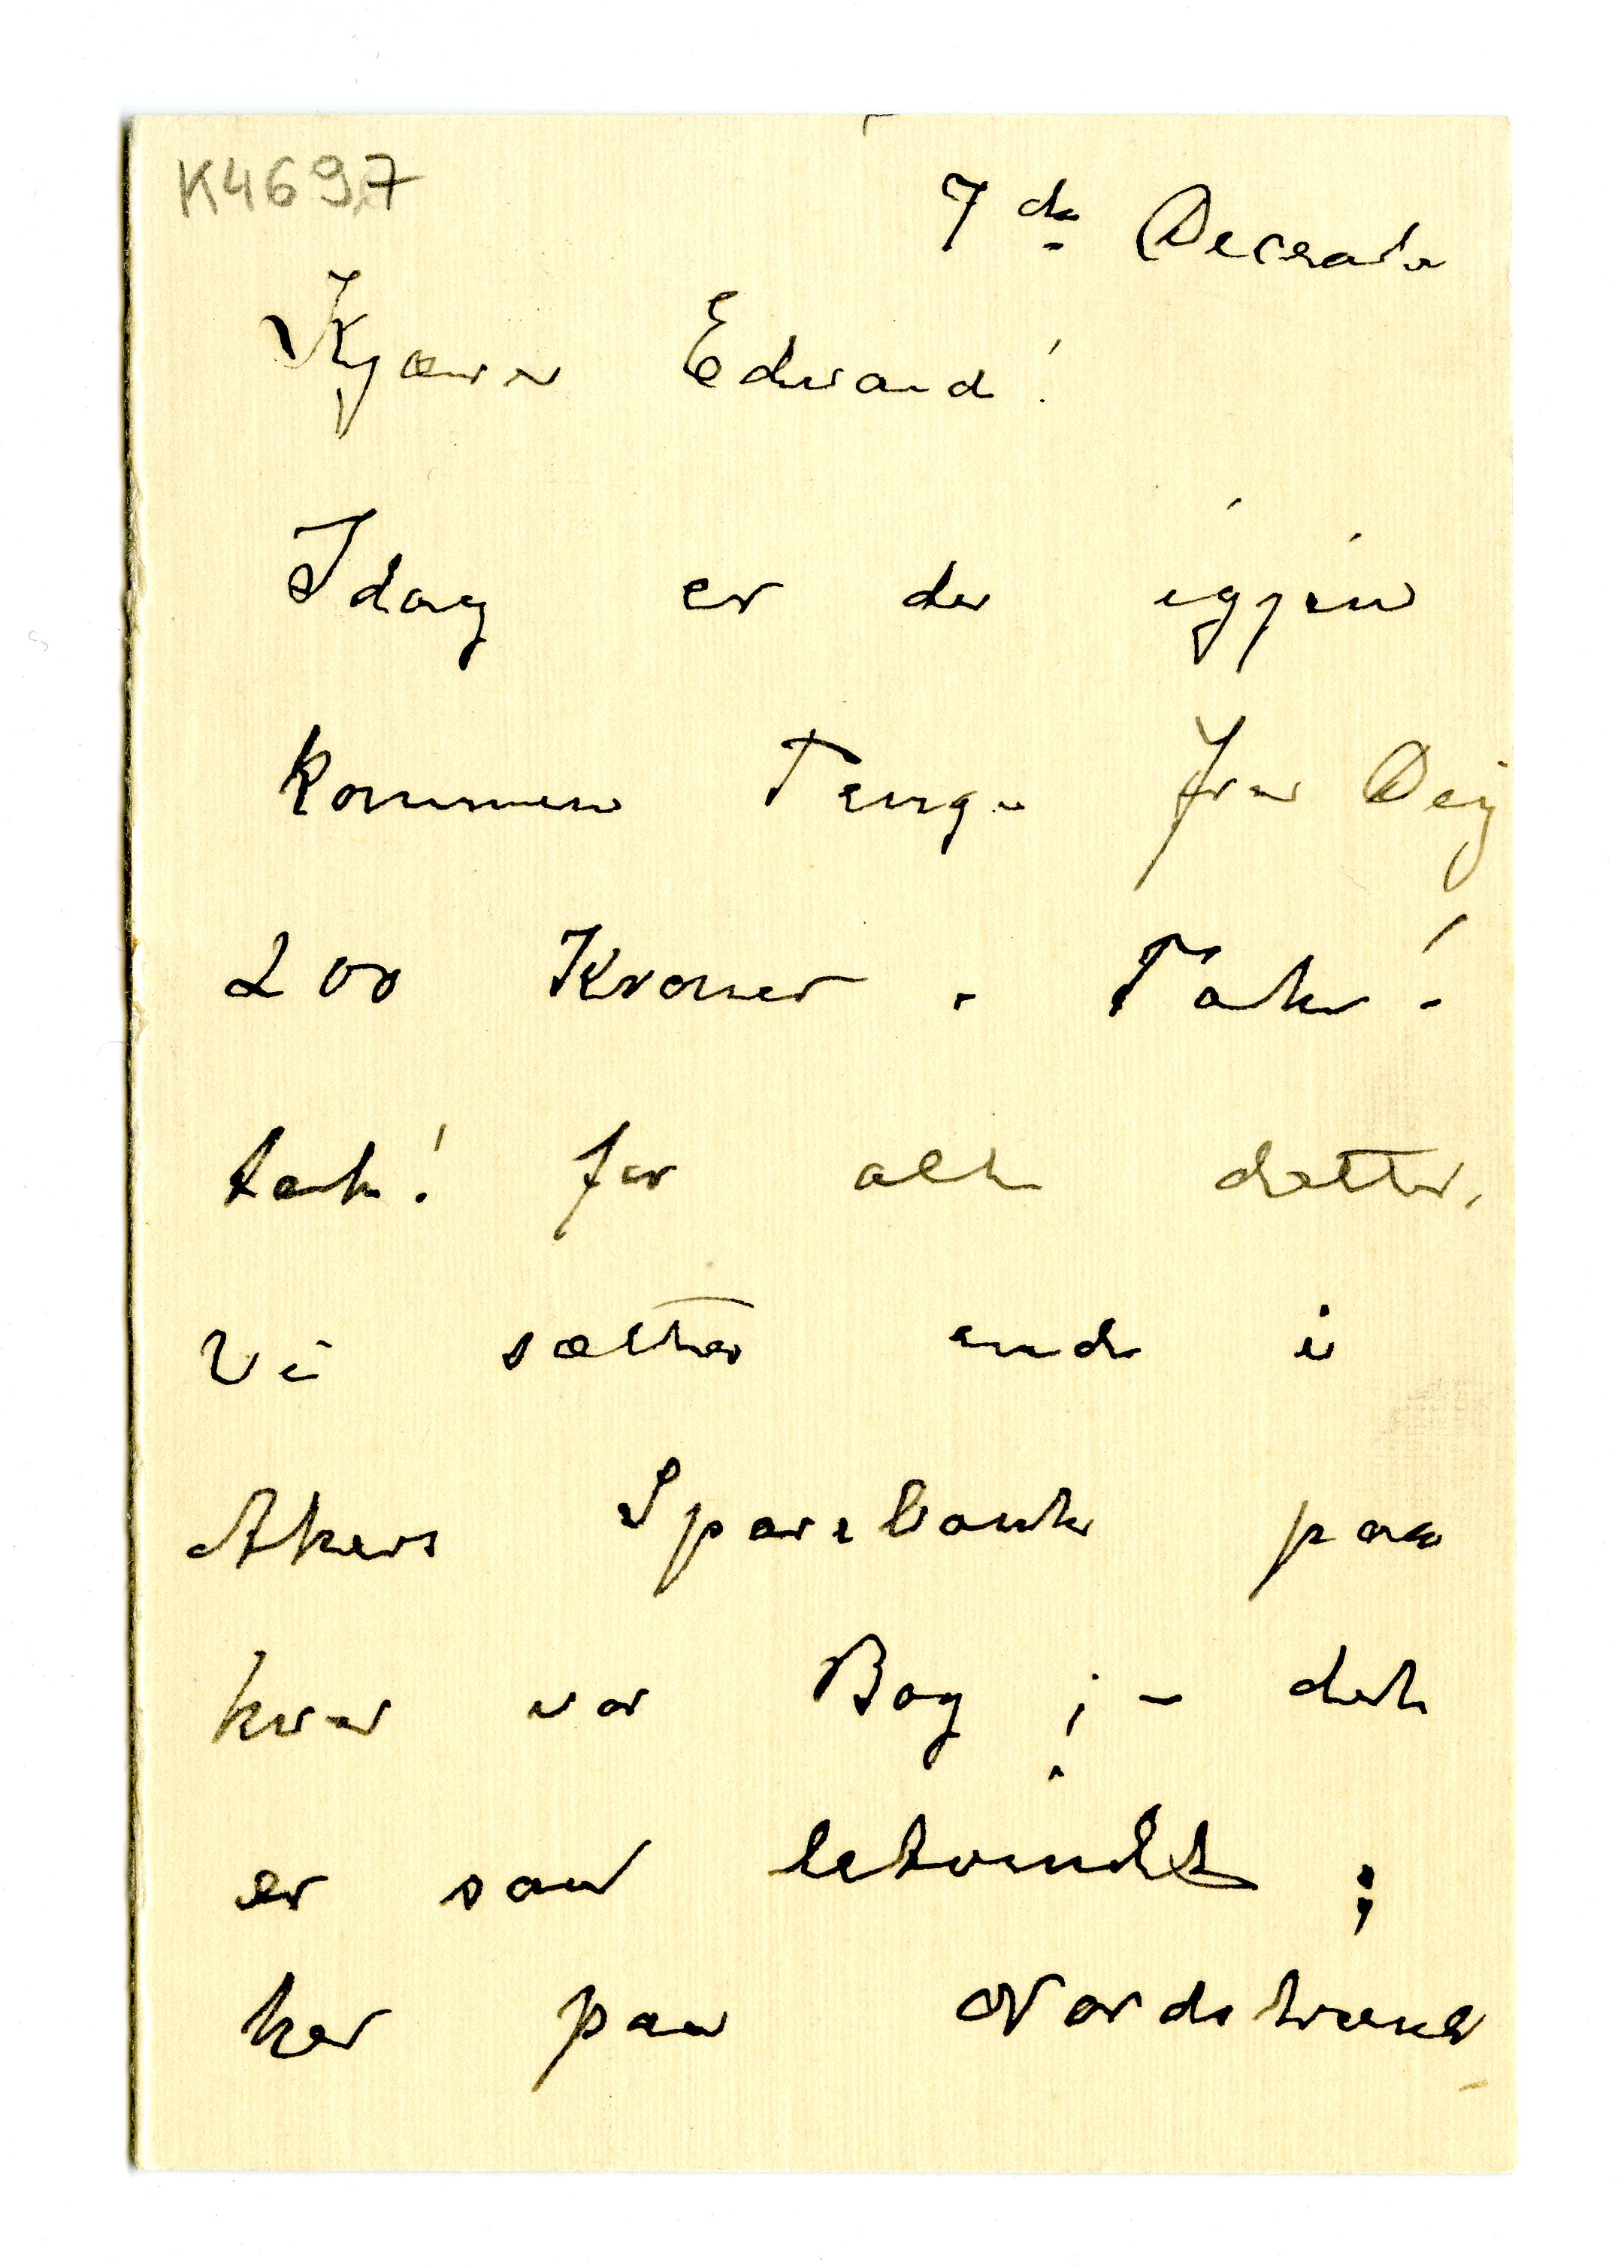 K4697
7de December
Kjære Edvard!
Idag er der igjen
kommen Penge fra Dig
200 Kroner. Tak!
tak! for alt dette,
Vi sætter ind i
Akers Sparebank paa
hver vor Bog; – det
er saa letvindt;
her paa Nordstrand